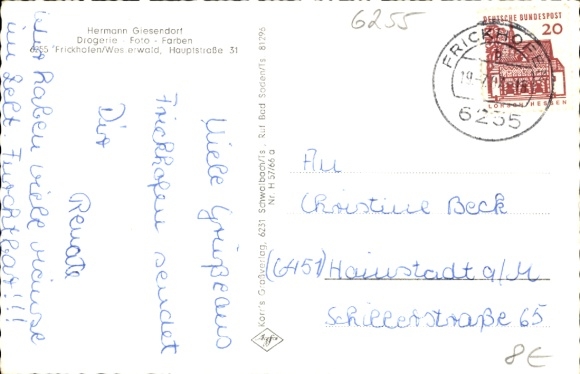 Hermann Giesendorf
Drogerie - Foto - Farben
6255 Frickhofen/Westerwald, Hauptstraße 31
6255
DEUTSCHE BUNDESPOST
20
LORSCH/HESSEN
FRICKHOFEN
6255
Viele Grüße aus
Frickhofen sendet
Dir
Renate
Wir haben viele Mäuse
im Zelt. Furchtbar!!!
Karin's Großverlag, 6231 Schwalbach/Ts. Ruf Bad Soden/Ts. 81296
Nr. H 57/66 a
An
Christine Beck
(6451) Hainstadt a/M
Schillerstraße 65
8€